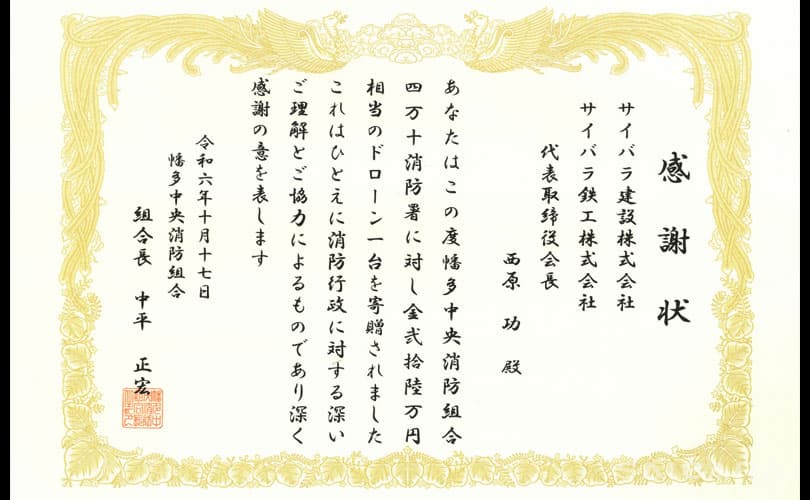 感謝状
サイバラ建設株式会社
サイバラ鉄工株式会社
代表取締役会長
西原 功 殿
あなたはこの度幡多中央消防組合
四万十消防署に対し金弐拾陸万円
相当のドローン一台を寄贈されました
これはひとえに消防行政に対する深い
ご理解とご協力によるものであり深く
感謝の意を表します
令和六年十月十七日
幡多中央消防組合
組合長 中平 正宏